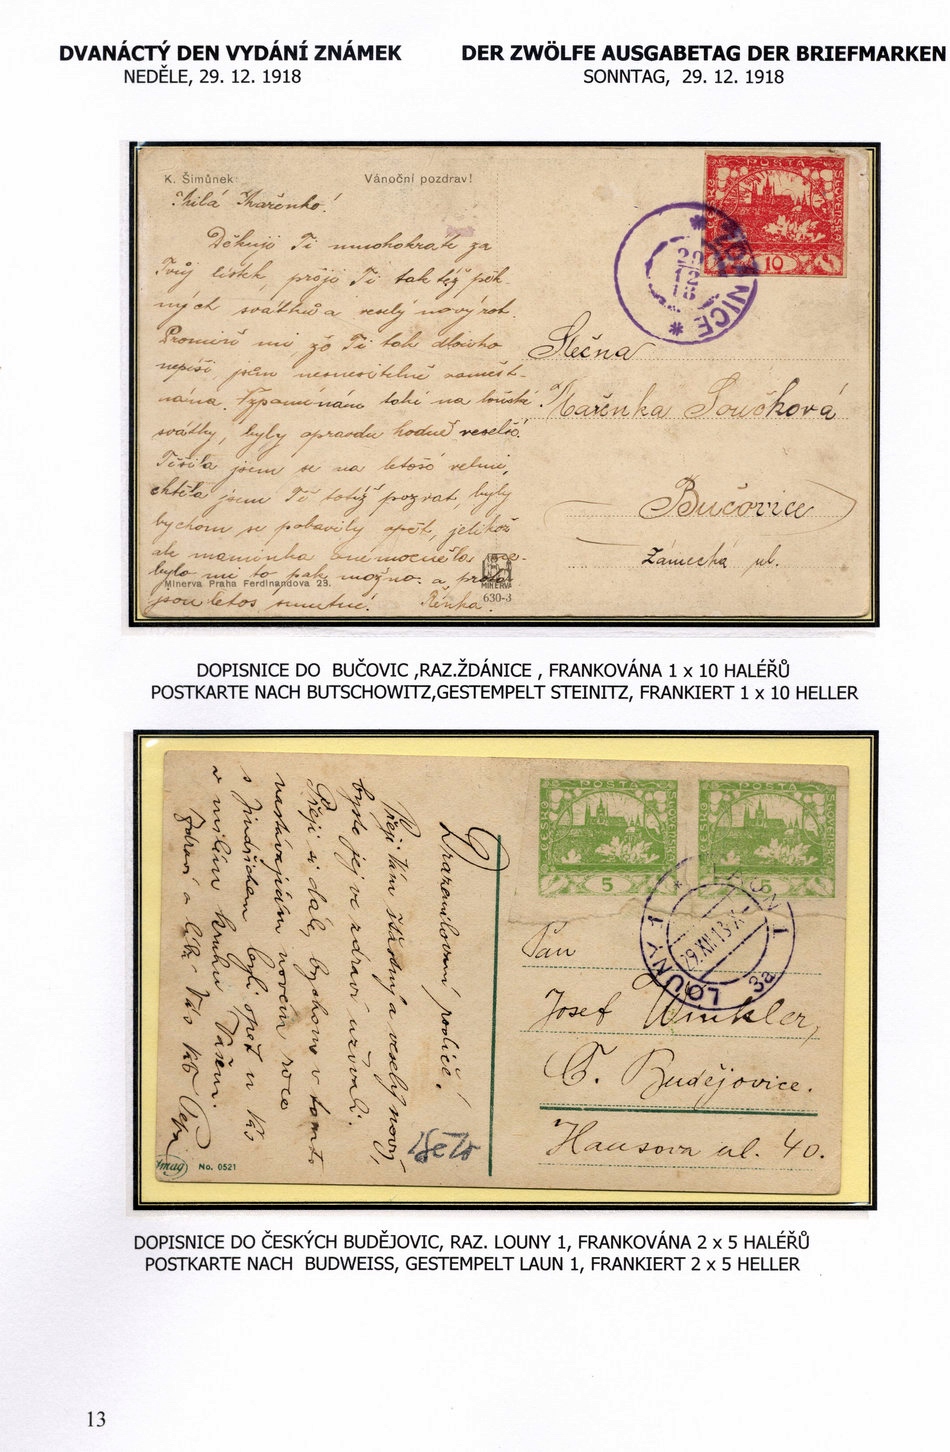 DVANÁCTÝ DEN VYDÁNÍ ZNÁMEK
NEDĚLE, 29. 12. 1918
DER ZWÖLFE AUSGABETAG DER BRIEFMARKEN
SONNTAG, 29. 12. 1918
K. Šimůnek:
Vánoční pozdrav!
Milá Mařenko!
Děkuji Ti mnohokrát za
Tvůj lístek, přeji Ti též pěk-
ných svátků a veselý nový rok.
Promiň mi, že Ti tak dlouho
nepíši jsem nesmírně zaměst-
nána. Vzpomínám také na loňské
svátky, byly opravdu hodně veselé.
Těšila jsem se na letošé velmi,
chtěla jsem Tě totiž pozvat, byly
bychom se pobavily opět, jelikož
ale maminka onemocněla, ne-
bylo mi to pak možno, a proto
jsou letos smutné. Řenka.
Minerva Praha Ferdinandova 23.
MINERVA
630-3
POSTA
ČESKO
SLOVENSKO
10
NICE
29
12
18
Slečna
Mařenka Součková
Bučovice
Zámecká ul.
DOPISNICE DO BUČOVIC ,RAZ.ŽDÁNICE , FRANKOVÁNA 1 x 10 HALÉŘŮ
POSTKARTE NACH BUTSCHOWITZ,GESTEMPELT STEINITZ, FRANKIERT 1 x 10 HELLER
Drazí milovaní rodiče!
Přeji Vám šťastný a veselý nový,
byste jej ve zdraví užívali.
Přeji si dále, bychom v tomto
nastávajícím novém roce
s Jindřichem byli opět u Vás
v milém kruhu Vašem.
Zdraví a líbá Vás Váš Pepa
No. 0521
POSTA
ČESKO
SLOVENSKO
5
POSTA
ČESKO
SLOVENSKO
5
LOUNY 1
29.XII.18-X-
LAUN 1
3a
Pan
Josef Winkler,
Č. Budějovice.
Hausova ul. 40.
DOPISNICE DO ČESKÝCH BUDĚJOVIC, RAZ. LOUNY 1, FRANKOVÁNA 2 x 5 HALÉŘŮ
POSTKARTE NACH BUDWEISS, GESTEMPELT LAUN 1, FRANKIERT 2 x 5 HELLER
13